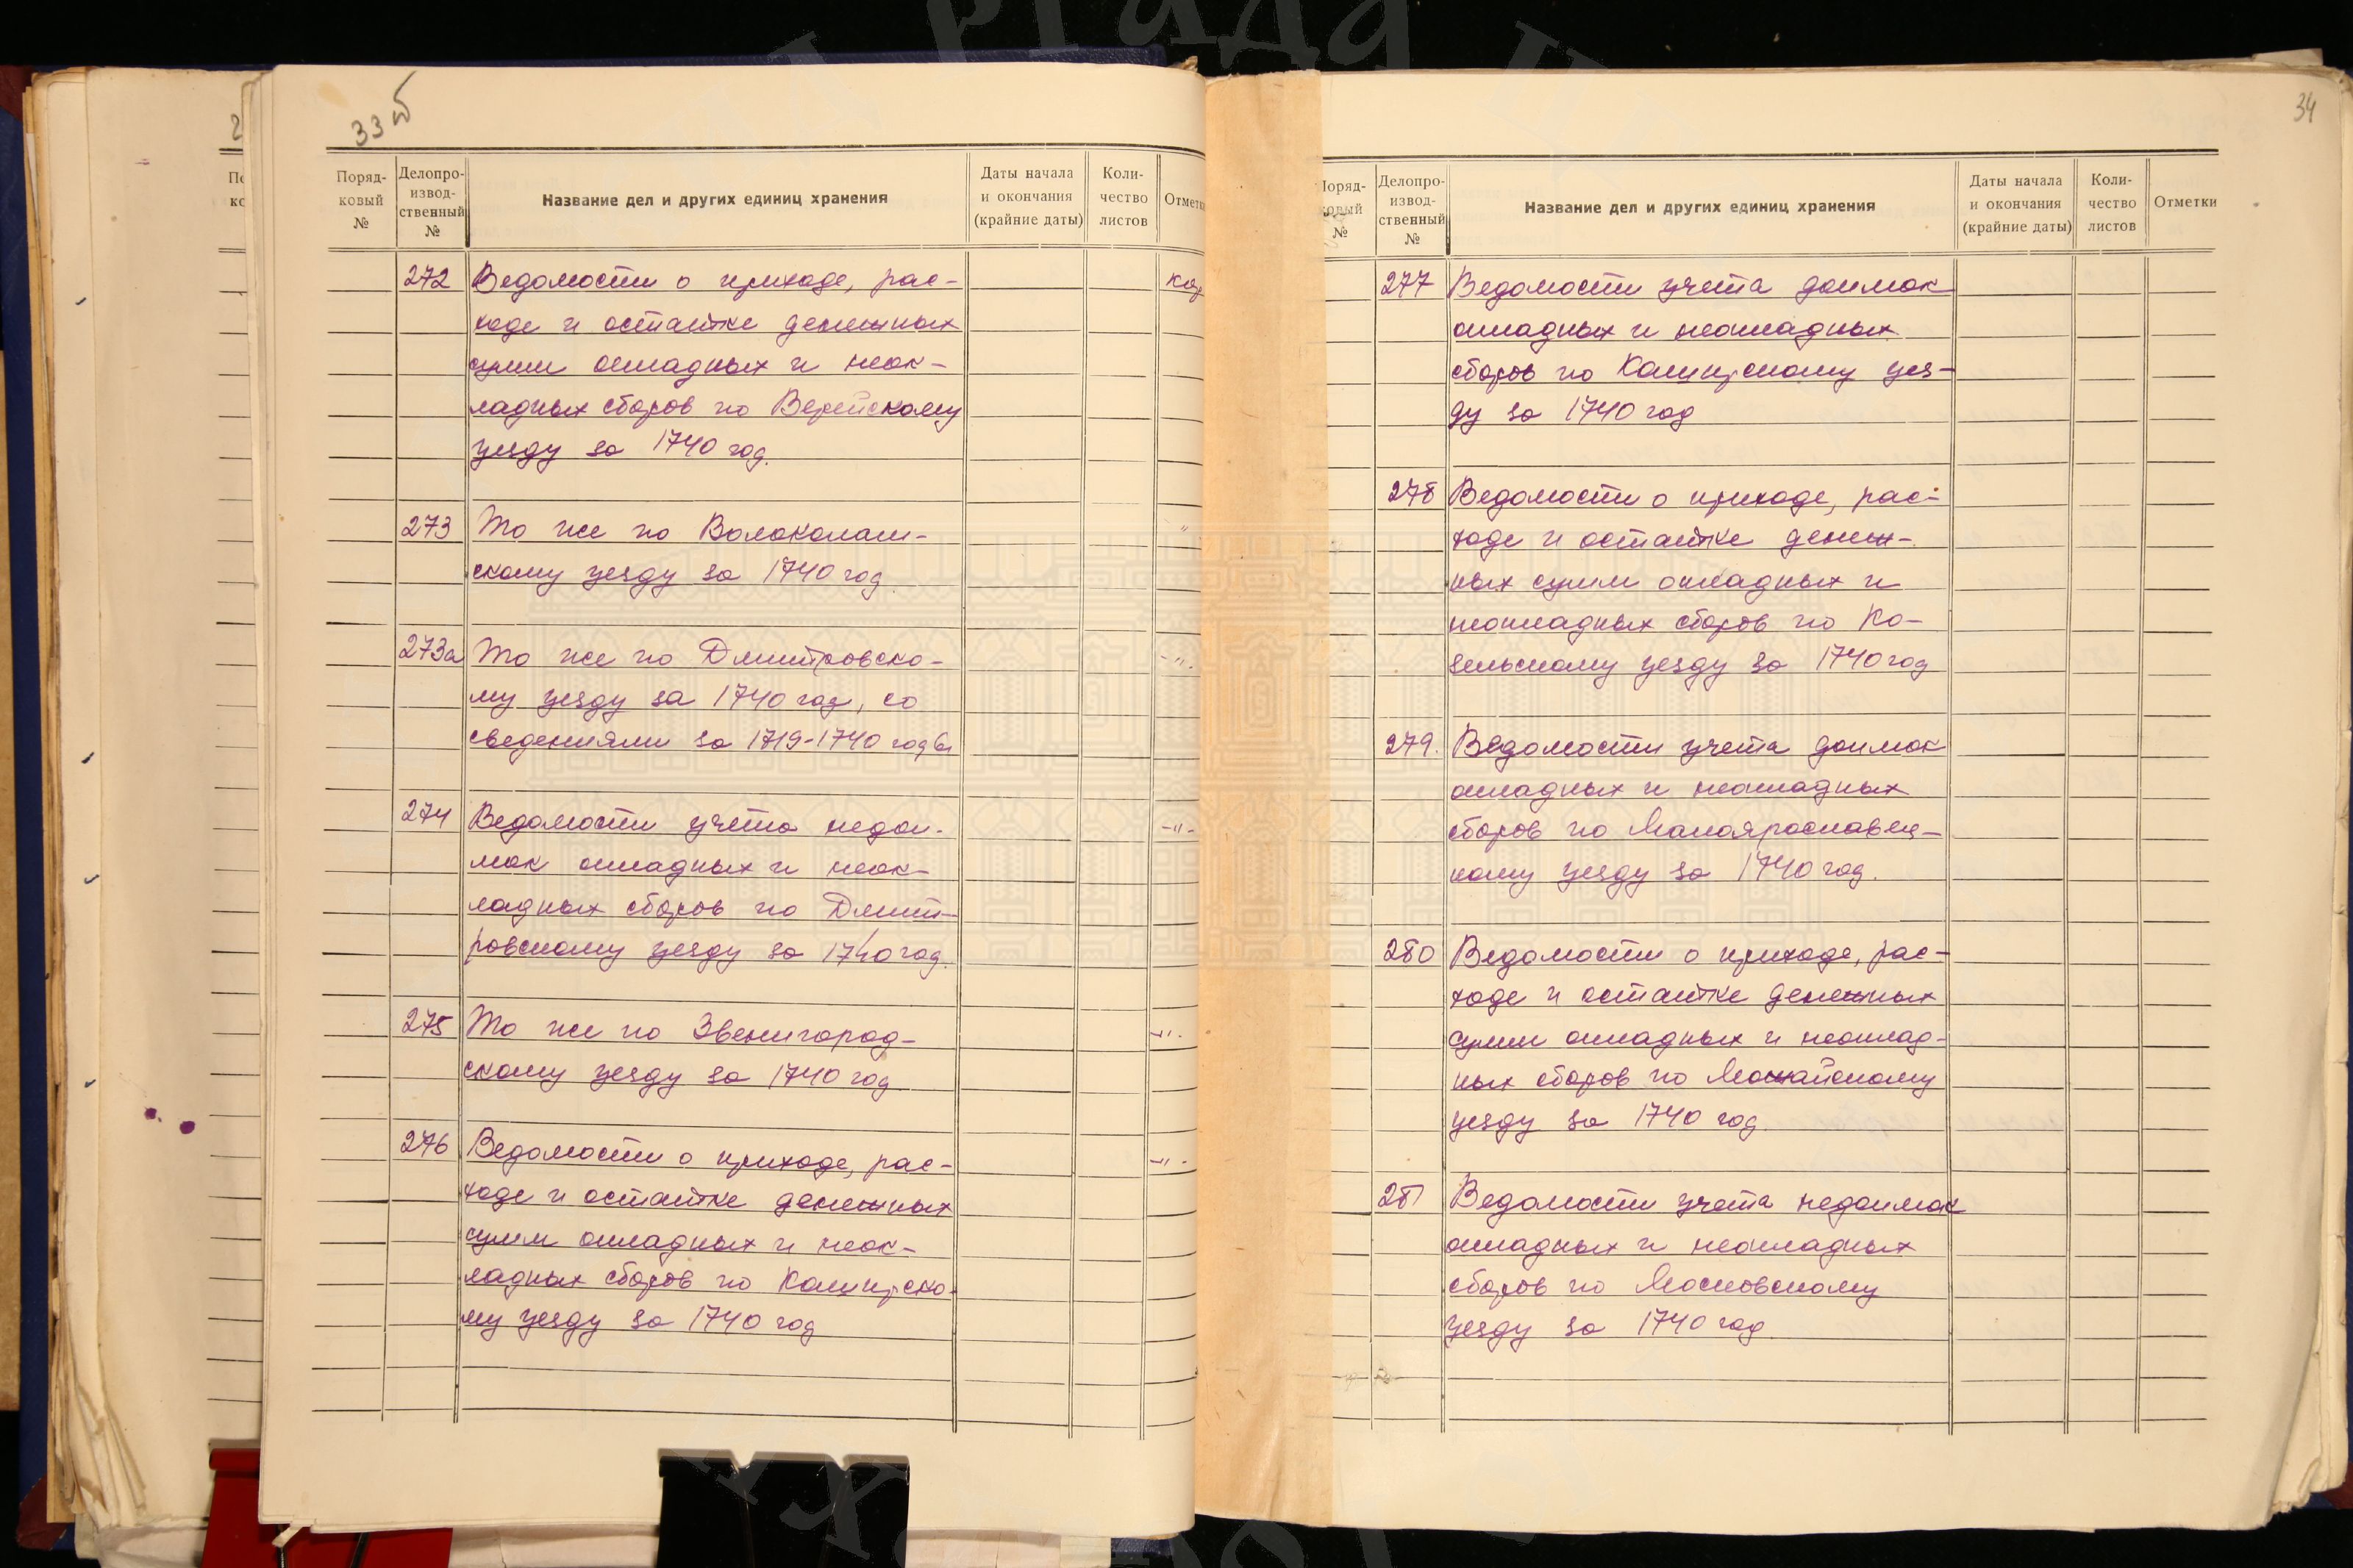 33 б
Поряд-
ковый
№
Делопро-
извод-
ственный
№
Название дел и других единиц хранения
Даты начала
и окончания
(крайние даты)
Коли-
чество
листов
Отметк
272 Ведомости о приходе, рас-
ходе и остатке денежных
сумм окладных и неок-
ладных сборов по Верейскому
уезду за 1740 год.
273 То же по Волоколам-
скому уезду за 1740 год.
273а То же по Дмитровско- -"-
му уезду за 1740 год, со
сведениями за 1719-1740 годы
274 Ведомости учета недои- -"-
мок окладных и неок-
ладных сборов по Дмит-
ровскому уезду за 1740 год.
275 То же по Звенигород- -"-
скому уезду за 1740 год
276 Ведомости о приходе, рас- -"-
ходе и остатке денежных
сумм окладных и неок-
ладных сборов по Каширско-
му уезду за 1740 год
34
Поряд-
ковый
№
Делопро-
извод-
ственный
№
Название дел и других единиц хранения
Даты начала
и окончания
(крайние даты)
Коли-
чество
листов
Отметки
277 Ведомости учета доимок
окладных и неокладных
сборов по Каширскому уез-
ду за 1740 год
278 Ведомости о приходе, рас-
ходе и остатке денеж-
ных сумм окладных и
неокладных сборов по Ко-
зельскому уезду за 1740 год
279. Ведомости учета доимок
окладных и неокладных
сборов по Малоярославец-
кому уезду за 1740 год.
280 Ведомости о приходе, рас-
ходе и остатке денежных
сумм окладных и неоклад-
ных сборов по Можайскому
уезду за 1740 год.
281 Ведомости учета недоимок
окладных и неокладных
сборов по Московскому
уезду за 1740 год